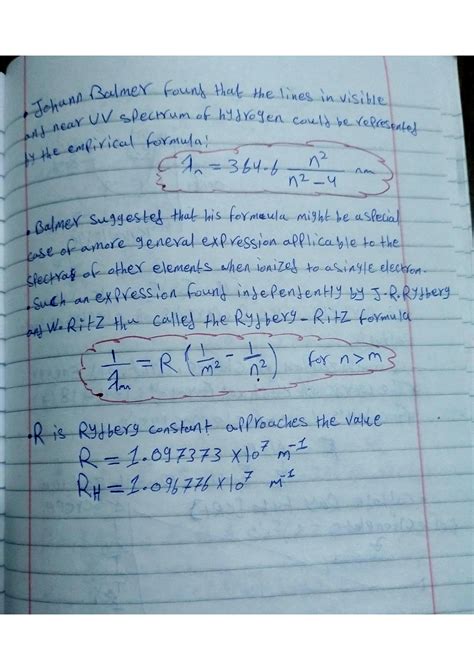 • Johann Balmer found that the lines in visible
and near UV spectrum of hydrogen could be represented
by the empirical formula:
λn = 364.6 n²/(n² − 4) nm
• Balmer suggested that his formula might be a special
case of a more general expression applicable to the
spectras of other elements when ionized to a single electron.
• Such an expression found independently by J.R. Rydberg
and W. Ritz thu called the Rydberg - Ritz formula
1/λm = R (1/m² − 1/n²) for n > m
• R is Rydberg constant approaches the value
R = 1.097373 × 10⁷ m⁻¹
RH = 1.096776 × 10⁷ m⁻¹